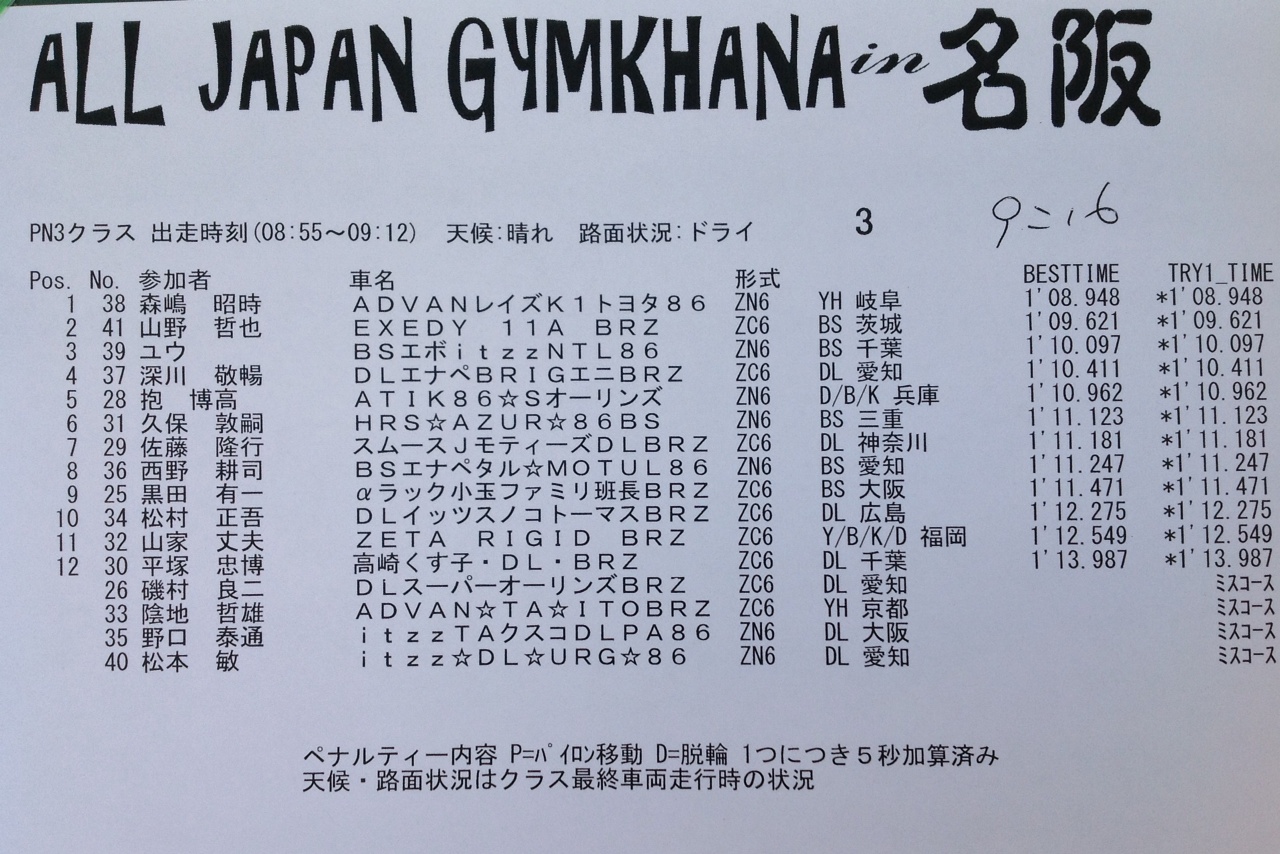 ALL JAPAN GYMKHANA in 名阪
9:16
PN3クラス 出走時刻(08:55～09:12) 天候:晴れ 路面状況:ドライ 3
Pos. No. 参加者 車名 形式 BESTTIME TRY1_TIME
1 38 森嶋 昭時 ADVANレイズK1トヨタ86 ZN6 YH 岐阜 1'08.948 *1'08.948
2 41 山野 哲也 EXEDY 11A BRZ ZC6 BS 茨城 1'09.621 *1'09.621
3 39 ユウ BSエボitzzNTL86 ZN6 BS 千葉 1'10.097 *1'10.097
4 37 深川 敬暢 DLエナペBRIGエニBRZ ZC6 DL 愛知 1'10.411 *1'10.411
5 28 抱 博高 ATIK86☆Sオーリンズ ZN6 D/B/K 兵庫 1'10.962 *1'10.962
6 31 久保 敦嗣 HRS☆AZUR☆86BS ZN6 BS 三重 1'11.123 *1'11.123
7 29 佐藤 隆行 スムースJモティーズDLBRZ ZC6 DL 神奈川 1'11.181 *1'11.181
8 36 西野 耕司 BSエナペタル☆MOTUL86 ZN6 BS 愛知 1'11.247 *1'11.247
9 25 黒田 有一 αラック小玉ファミリ班長BRZ ZC6 BS 大阪 1'11.471 *1'11.471
10 34 松村 正吾 DLイッツスノコトーマスBRZ ZC6 DL 広島 1'12.275 *1'12.275
11 32 山家 丈夫 ZETA RIGID BRZ ZC6 Y/B/K/D 福岡 1'12.549 *1'12.549
12 30 平塚 忠博 高崎くす子・DL・BRZ ZC6 DL 千葉 1'13.987 *1'13.987
26 磯村 良二 DLスーパーオーリンズBRZ ZC6 DL 愛知 ﾐｽｺｰｽ
33 陰地 哲雄 ADVAN☆TA☆ITOBRZ ZC6 YH 京都 ﾐｽｺｰｽ
35 野口 泰通 itzzTAクスコDLPA86 ZN6 DL 大阪 ﾐｽｺｰｽ
40 松本 敏 itzz☆DL☆URG☆86 ZN6 DL 愛知 ﾐｽｺｰｽ
ペナルティー内容 P=ﾊﾟｲﾛﾝ移動 D=脱輪 1つにつき5秒加算済み
天候・路面状況はクラス最終車両走行時の状況